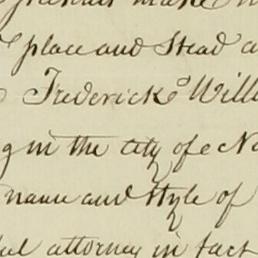 make
place and Stead a
Fredericks Will
g in the city of Ne
name and style of
ful attorney in fact